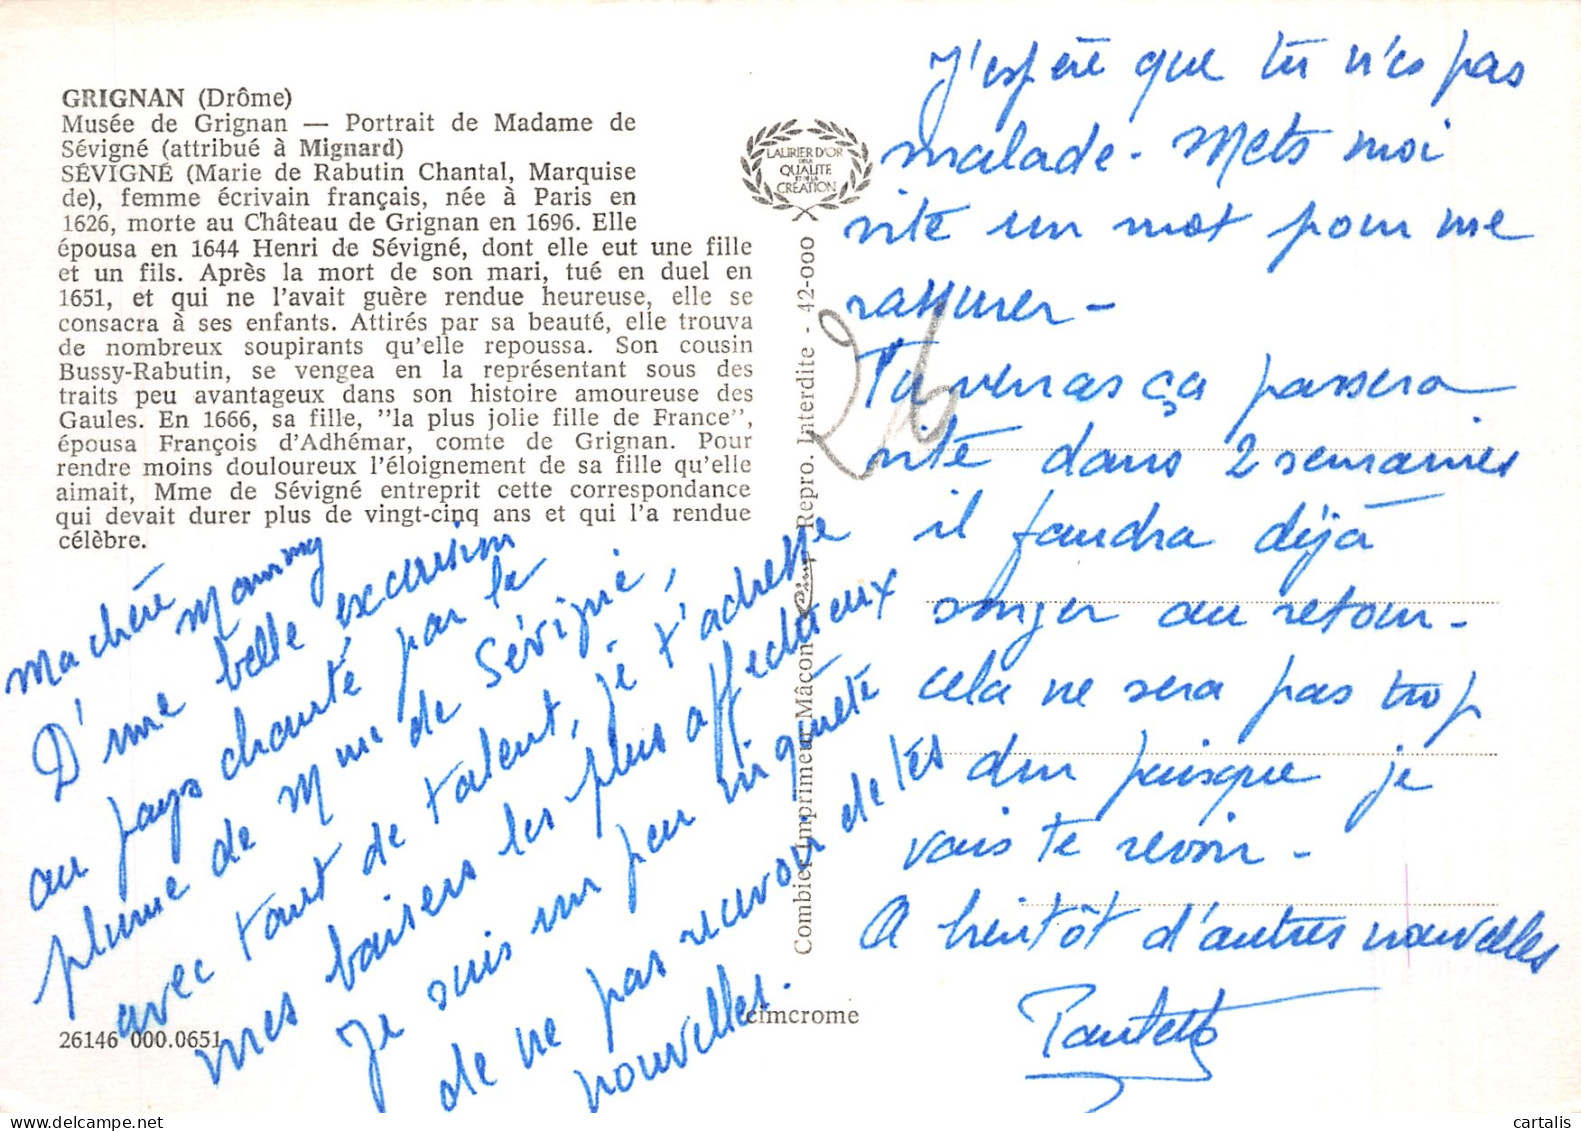 GRIGNAN (Drôme)
Musée de Grignan — Portrait de Madame de
Sévigné (attribué à Mignard)
SÉVIGNÉ (Marie de Rabutin Chantal, Marquise
de), femme écrivain français, née à Paris en
1626, morte au Château de Grignan en 1696. Elle
épousa en 1644 Henri de Sévigné, dont elle eut une fille
et un fils. Après la mort de son mari, tué en duel en
1651, et qui ne l'avait guère rendue heureuse, elle se
consacra à ses enfants. Attirés par sa beauté, elle trouva
de nombreux soupirants qu'elle repoussa. Son cousin
Bussy-Rabutin, se vengea en la représentant sous des
traits peu avantageux dans son histoire amoureuse des
Gaules. En 1666, sa fille, "la plus jolie fille de France",
épousa François d'Adhémar, comte de Grignan. Pour
rendre moins douloureux l'éloignement de sa fille qu'elle
aimait, Mme de Sévigné entreprit cette correspondance
qui devait durer plus de vingt-cinq ans et qui l'a rendue
célèbre.
Ma chère Maminy
D'une belle excursion
au pays chanté par la
plume de Mme de Sévigné,
avec tant de talent, je t'adresse
mes baisers les plus affectueux
Je suis un peu inquiète
de ne pas recevoir de tes
nouvelles.
26146 000.0651
LAURIER D'OR
DE LA
QUALITE
ET DE LA
CREATION
Combier Imprimeur Mâcon Cimp Repro. Interdite - 42-000
cimcrome
26
J'espère que tu n'es pas
malade. Mets moi
vite un mot pour me
rassurer -
Tu verras ça passera
vite dans 2 semaines
il faudra déjà
songer au retour.
cela ne sera pas trop
dur puisque je
vais te revoir -
A bientôt d'autres nouvelles
Paulette
cartalis.com